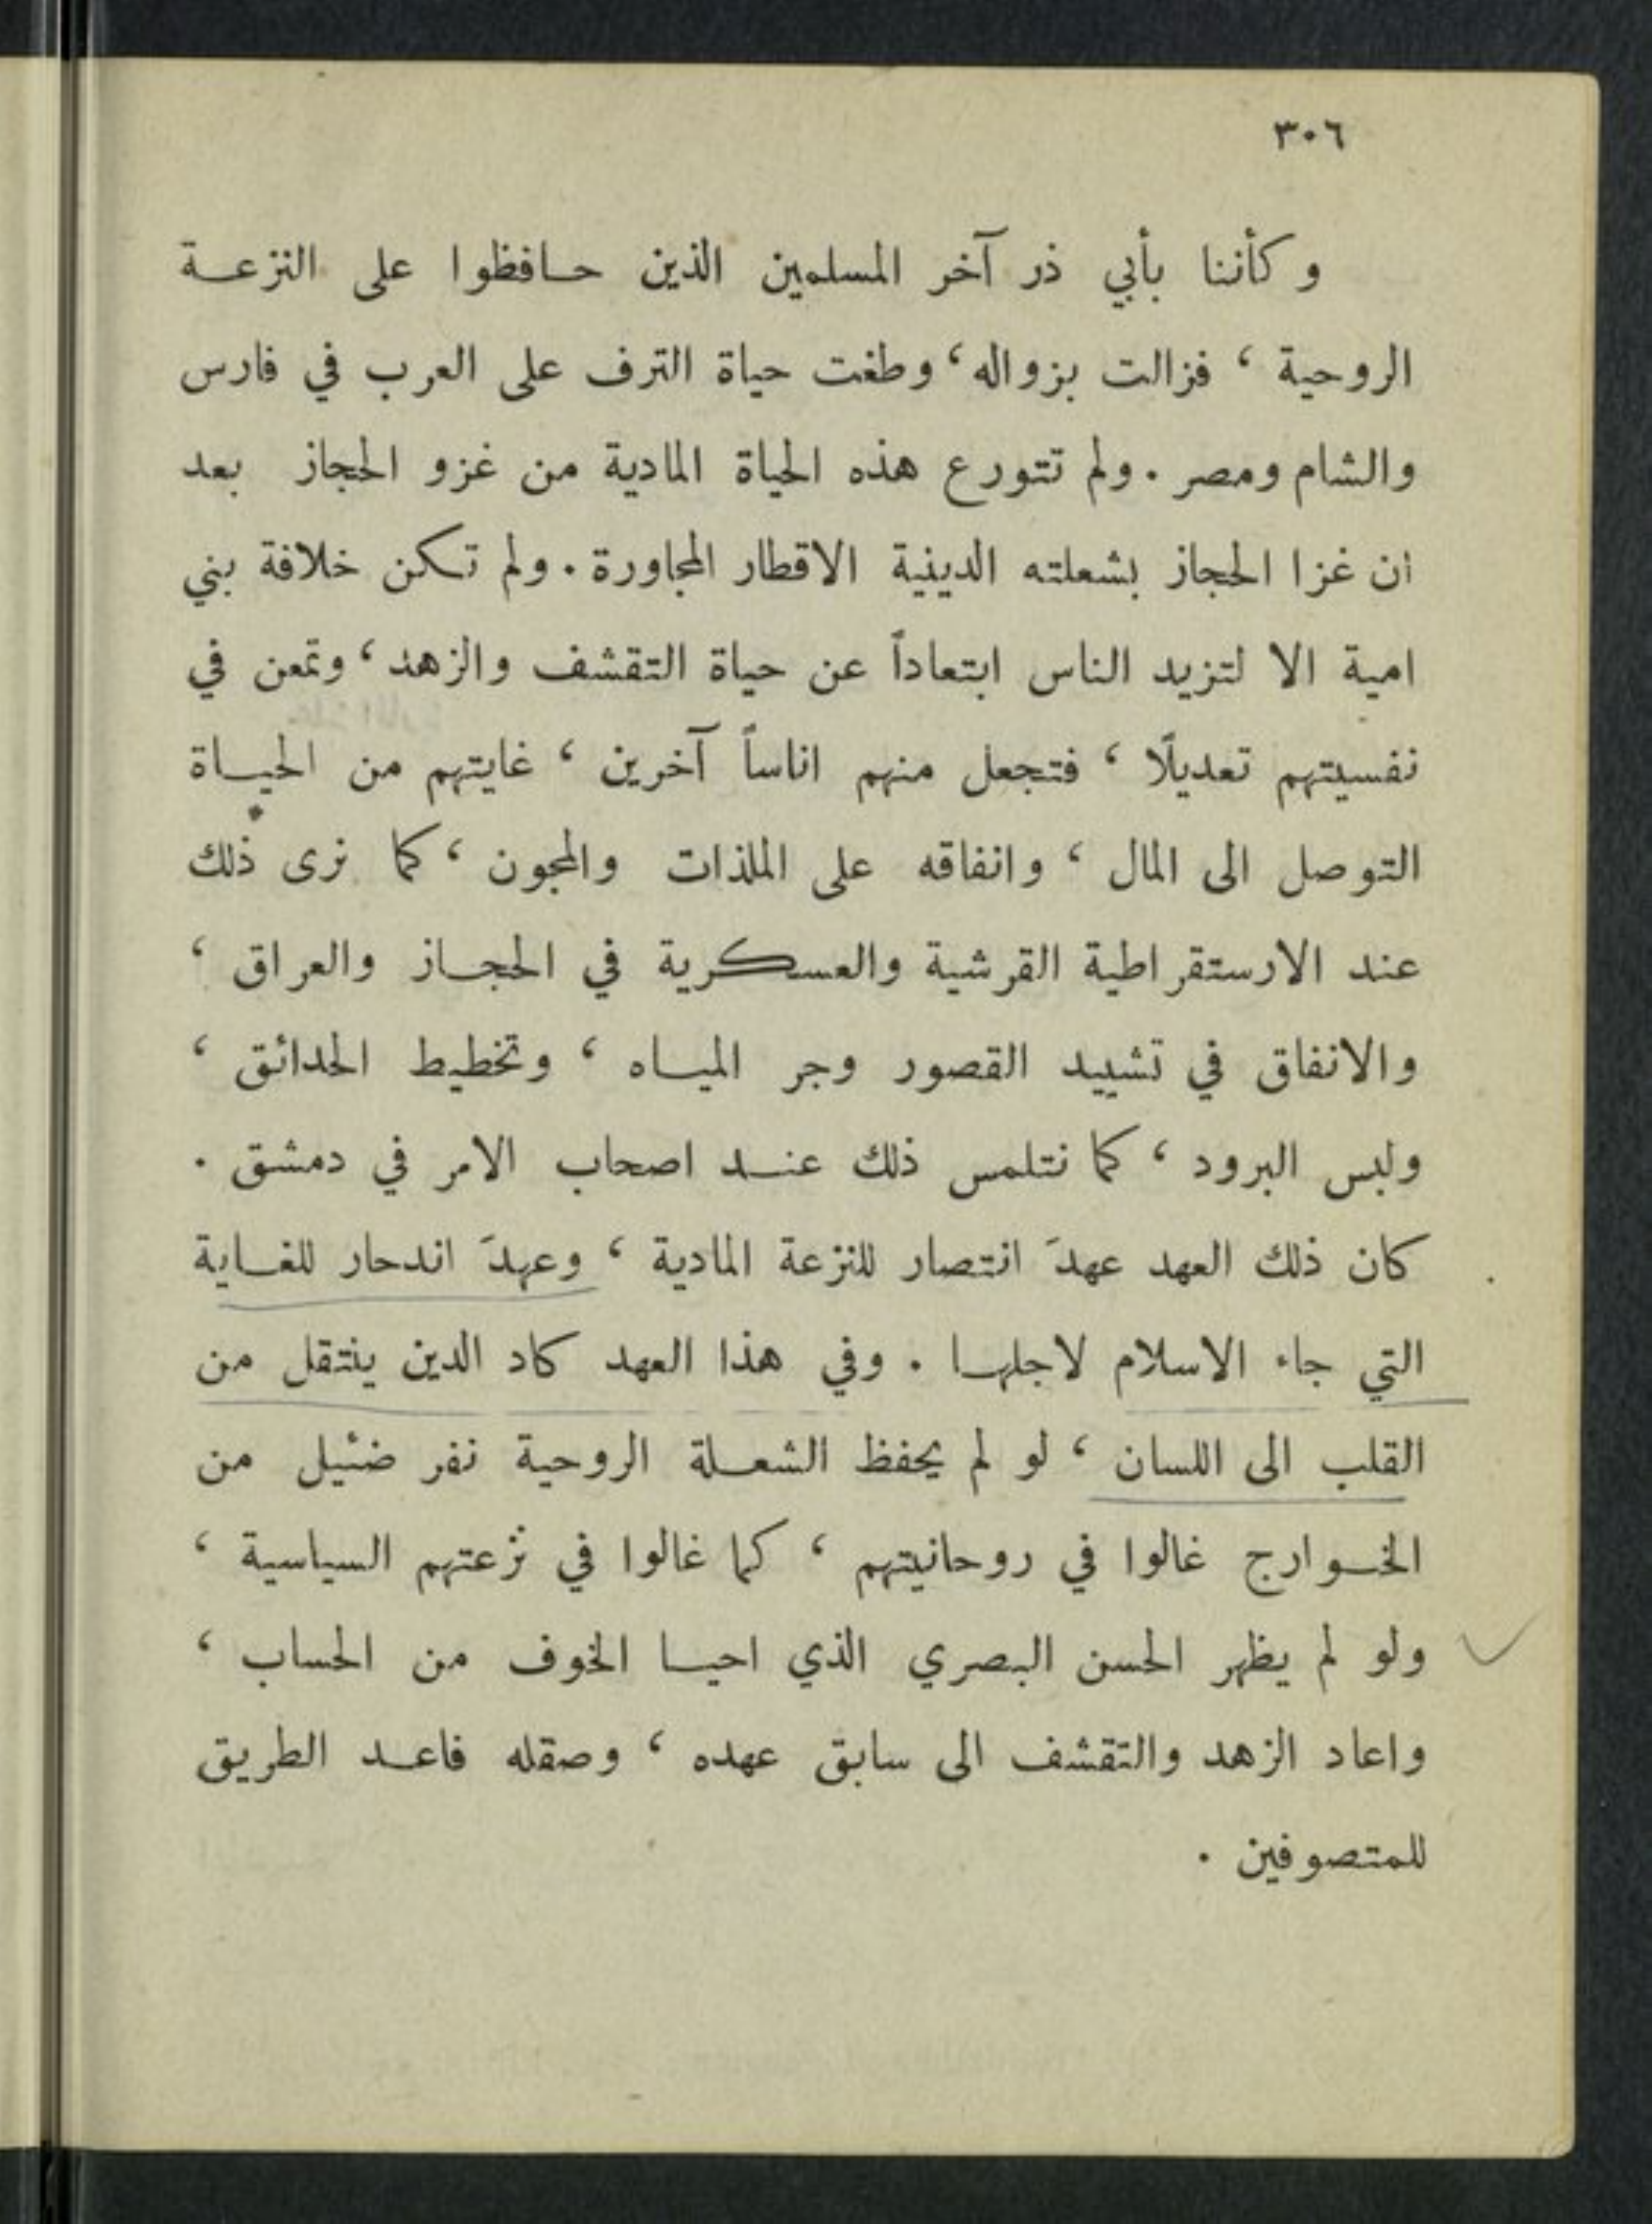 ٣٠٦
وكأننا بأبي ذر آخر المسلمين الذين حافظوا على النزعة
الروحية ، فزالت بزواله ، وطغت حياة الترف على العرب في فارس
والشام ومصر . ولم تتورع هذه الحياة المادية من غزو الحجاز بعد
ان غزا الحجاز بشعلته الدينية الاقطار المجاورة . ولم تكن خلافة بني
امية الا لتزيد الناس ابتعاداً عن حياة التقشف والزهد ، وتمعن في
نفسيتهم تعديلًا ، فتجعل منهم اناساً آخرين ، غايتهم من الحياة
التوصل الى المال ، وانفاقه على الملذات والمجون ، كما نرى ذلك
عند الارستقراطية القرشية والعسكرية في الحجاز والعراق ،
والانفاق في تشييد القصور وجر المياه ، وتخطيط الحدائق ،
ولبس البرود ، كما نتلمس ذلك عند اصحاب الامر في دمشق .
كان ذلك العهد عهدَ انتصار للنزعة المادية ، وعهدَ اندحار للغاية
التي جاء الاسلام لاجلها . وفي هذا العهد كاد الدين ينتقل من
القلب الى اللسان ، لو لم يحفظ الشعلة الروحية نفر ضئيل من
الخوارج غالوا في روحانيتهم ، كما غالوا في نزعتهم السياسية ،
ولو لم يظهر الحسن البصري الذي احيا الخوف من الحساب ،
واعاد الزهد والتقشف الى سابق عهده ، وصقله فاعد الطريق
للمتصوفين .